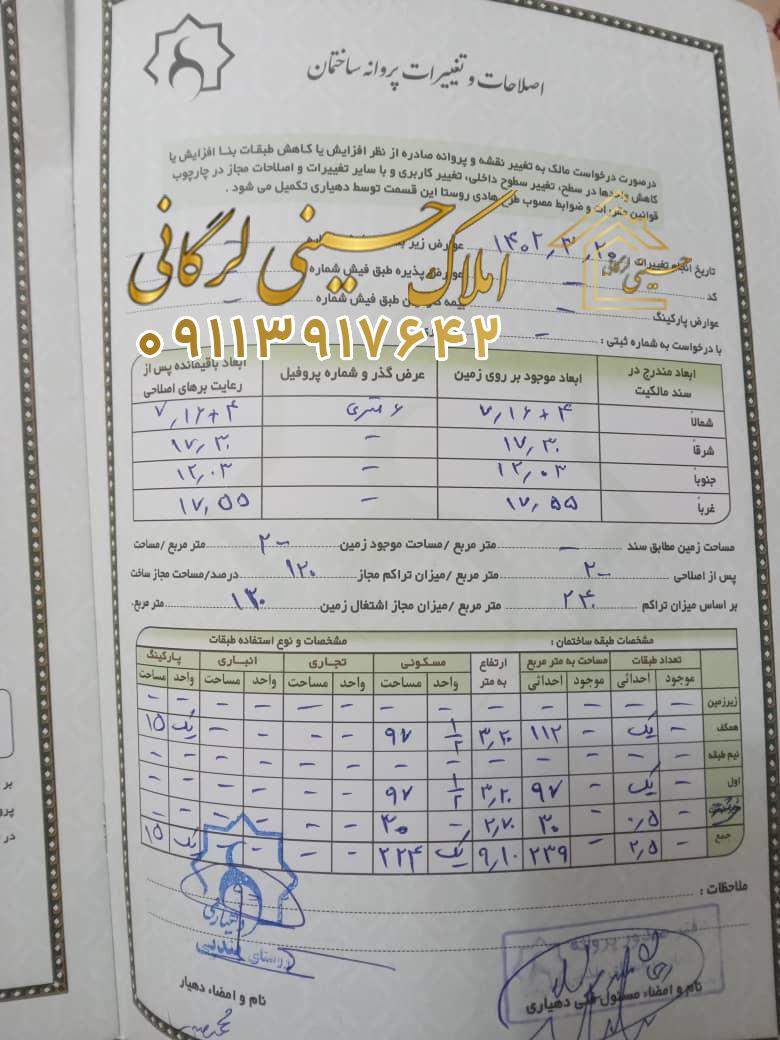 اصلاحات و تغییرات پروانه ساختمان
درصورت درخواست مالک به تغییر نقشه و پروانه صادره از نظر افزایش یا کاهش طبقات بنا افزایش یا
کاهش واحدها در سطح، تغییر سطوح داخلی، تغییر کاربری و یا سایر تغییرات و اصلاحات مجاز در چارچوب
قوانین مقررات و ضوابط مصوب طرح هادی روستا این قسمت توسط دهیاری تکمیل می شود .
املاک حسینی لرگانی
حسینی لرگانی
تاریخ انجام تغییرات ۱۴۰۲,۳,۲۰ عوارض زیر
کد – عوارض پذیره طبق فیش شماره –
عوارض پارکینگ – بیمه طبق فیش شماره –
با درخواست به شماره ثبتی : –
۰۹۱۱۳۹۱۷۶۴۲
ابعاد مندرج در سند مالکیت ابعاد موجود بر روی زمین عرض گذر و شماره پروفیل ابعاد باقیمانده پس از رعایت برهای اصلاحی
شمالا ۷,۱۶+۴ ۶ متری ۷,۱۶+۴
شرقا ۱۷,۳۰ – ۱۷,۳۰
جنوبا ۱۲,۰۳ – ۱۲,۰۳
غربا ۱۷,۵۵ – ۱۷,۵۵
مساحت زمین مطابق سند – متر مربع /مساحت موجود زمین ۲۰۰ متر مربع /مساحت
پس از اصلاحی ۲۰۰ متر مربع /میزان تراکم مجاز ۱۲۰ درصد/مساحت مجاز ساخت
بر اساس میزان تراکم ۲۴۰ متر مربع /میزان مجاز اشتغال زمین ۱۲۰ متر مربع.
مشخصات طبقه ساختمان : مشخصات و نوع استفاده طبقات
تعداد طبقات مساحت به متر مربع ارتفاع به متر مسکونی تجاری انباری پارکینگ
موجود احداثی موجود احداثی واحد مساحت واحد مساحت واحد مساحت واحد مساحت
زیرزمین – – – – – – – – – – – – –
همکف – یک – ۱۱۲ ۳,۲۰ ۱/۲ ۹۷ – – – – یک ۱۵
نیم طبقه – – – – – – – – – – – – –
اول – یک – ۹۷ ۳,۲۰ ۱/۲ ۹۷ – – – – – –
– ۰,۵ – ۳۰ ۲,۷۰ – ۳۰ – – – – – –
جمع – ۲,۵ – ۲۳۹ ۹,۱۰ یک ۲۲۴ – – – – یک ۱۵
ملاحظات :
دهیاری
روستای
نام و امضاء مسئول فنی دهیاری
نام و امضاء دهیار